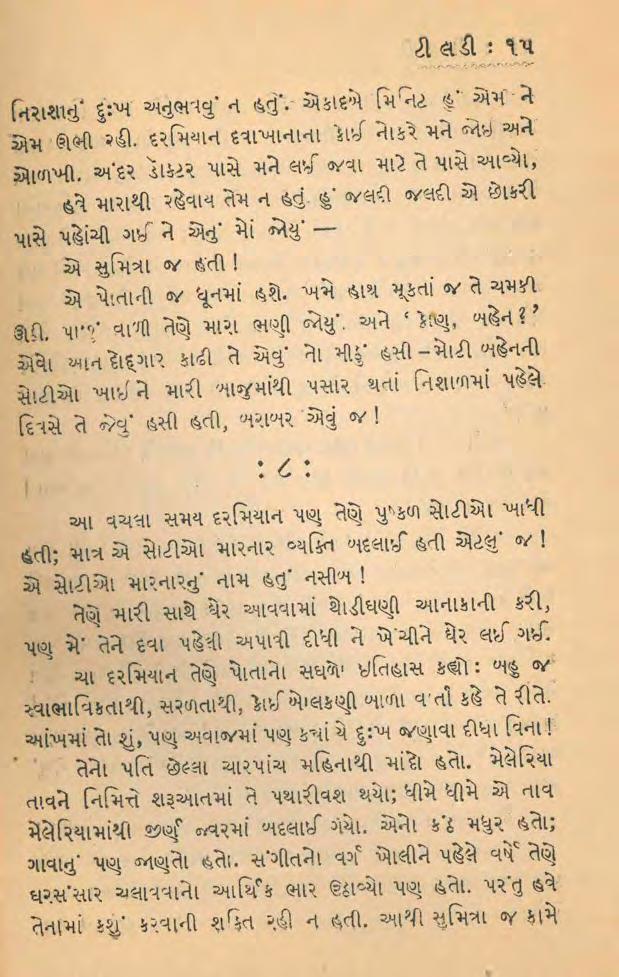 ટીલડી : ૧૫
નિરાશાનું દુઃખ અનુભવવું ન હતું. એકાદબે મિનિટ હું એમ ને
એમ ઊભી રહી. દરમિયાન દવાખાનાના કોઈ નોકરે મને જોઈ અને
ઓળખી. અંદર ડૉક્ટર પાસે મને લઈ જવા માટે તે પાસે આવ્યો,
હવે મારાથી રહેવાય તેમ ન હતું. હું જલદી જલદી એ છોકરી
પાસે પહોંચી ગઈ ને એનું મોં જોયું —
એ સુમિત્રા જ હતી!
એ પોતાની જ ધૂનમાં હશે. ખભે હાથ મૂકતાં જ તે ચમકી
ઊઠી. પાછું વાળી તેણે મારા ભણી જોયું. અને ‘ કોણ, બહેન?’
એવો આનંદોદ્ગાર કાઢી તે એવું તો મીઠું હસી – મોટી બહેનની
સોટીઓ ખાઈને મારી બાજુમાંથી પસાર થતાં નિશાળમાં પહેલે
દિવસે તે જેવું હસી હતી, બરાબર એવું જ!
: ૮ :
આ વચલા સમય દરમિયાન પણ તેણે પુષ્કળ સોટીઓ ખાધી
હતી; માત્ર એ સોટીઓ મારનાર વ્યક્તિ બદલાઈ હતી એટલું જ!
એ સોટીઓ મારનારનું નામ હતું નસીબ!
તેણે મારી સાથે ઘેર આવવામાં થોડીઘણી આનાકાની કરી,
પણ મેં તેને દવા પહેલી અપાવી દીધી ને ખેંચીને ઘેર લઈ ગઈ.
ચા દરમિયાન તેણે પોતાનો સઘળો ઇતિહાસ કહ્યો: બહુ જ
સ્વાભાવિકતાથી, સરળતાથી, કોઈ બોલકણી બાળા વાર્તા કહે તે રીતે.
આંખમાં તો શું, પણ અવાજમાં પણ ક્યાં યે દુઃખ જણાવા દીધા વિના!
તેનો પતિ છેલ્લા ચારપાંચ મહિનાથી માંદો હતો. મેલેરિયા
તાવને નિમિત્તે શરૂઆતમાં તે પથારીવશ થયો; ધીમે ધીમે એ તાવ
મેલેરિયામાંથી જીર્ણ જ્વરમાં બદલાઈ ગયો. એનો કંઠ મધુર હતો;
ગાવાનું પણ જાણતો હતો. સંગીતનો વર્ગ ખોલીને પહેલે વર્ષે તેણે
ઘરસંસાર ચલાવવાનો આર્થિક ભાર ઉઠાવ્યો પણ હતો. પરંતુ હવે
તેનામાં કશું કરવાની શક્તિ રહી ન હતી. આથી સુમિત્રા જ કામે